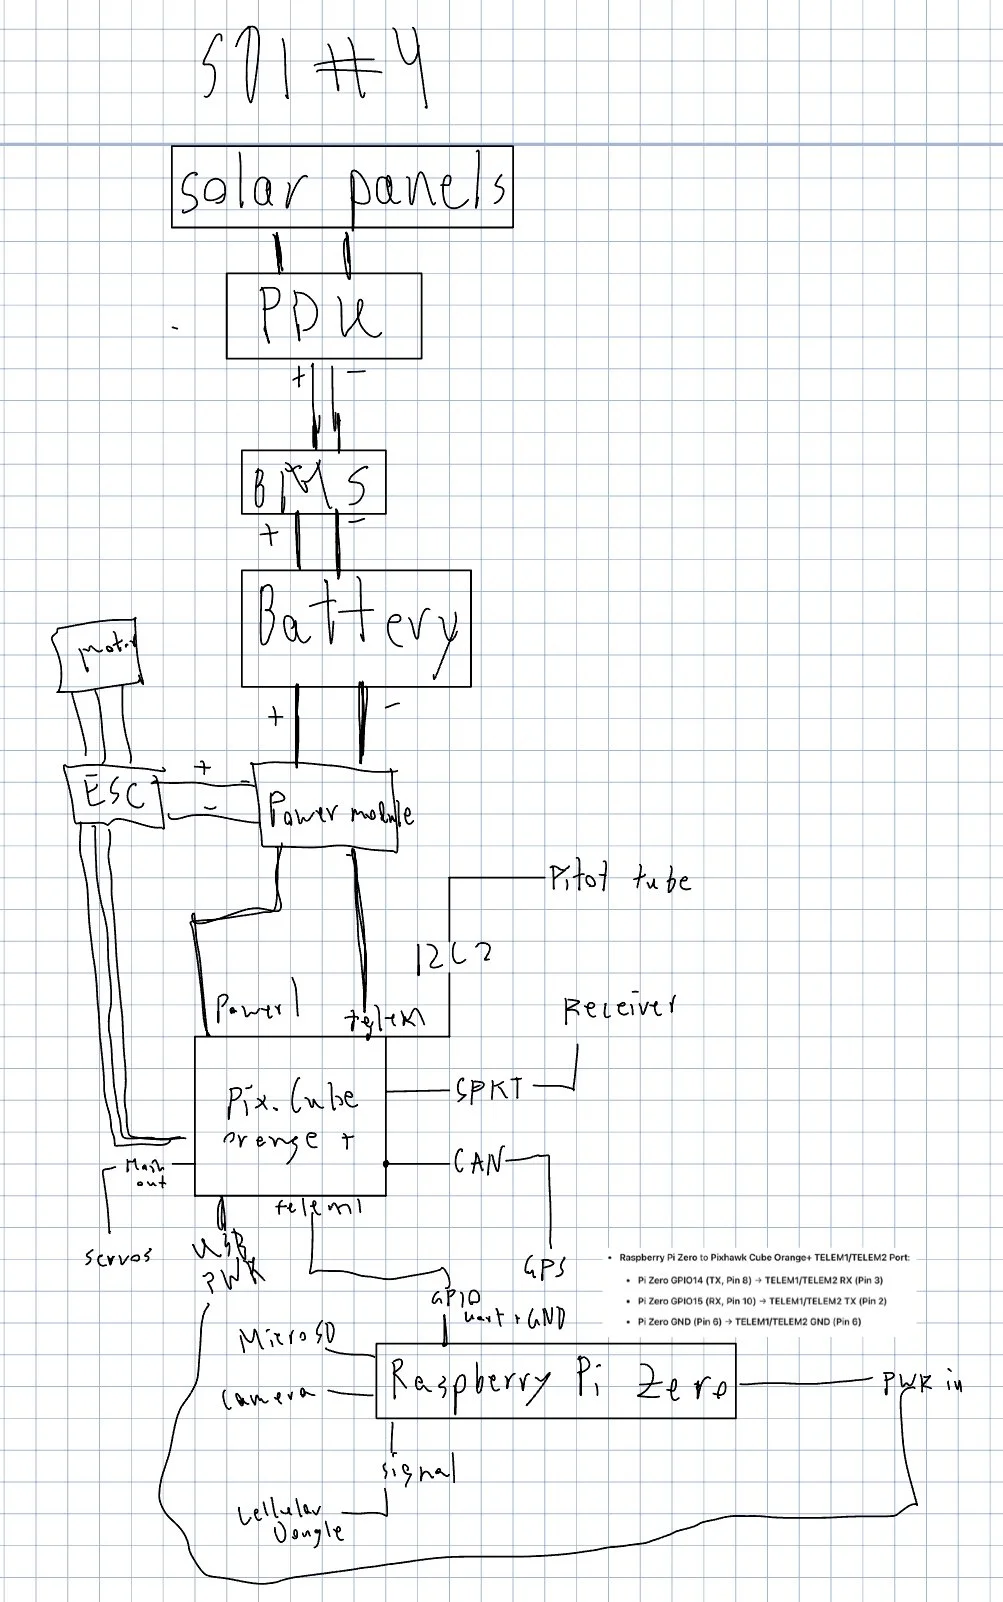 SD1 #4
solar panels
PDU
+ -
BMS
+ -
Battery
motor
+ -
ESC
+
-
Power module
Pitot tube
I2C2
Receiver
Power1
Pix. Cube
orange +
SPKT
CAN
Main
out
servos
telem1
USB
PWR
GPS
GPIO
uart + GND
• Raspberry Pi Zero to Pixhawk Cube Orange+ TELEM1/TELEM2 Port:
• Pi Zero GPIO14 (TX, Pin 8) → TELEM1/TELEM2 RX (Pin 3)
• Pi Zero GPIO15 (RX, Pin 10) → TELEM1/TELEM2 TX (Pin 2)
• Pi Zero GND (Pin 6) → TELEM1/TELEM2 GND (Pin 6)
MicroSD
Raspberry Pi Zero
PWR in
camera
signal
Cellular
Dongle